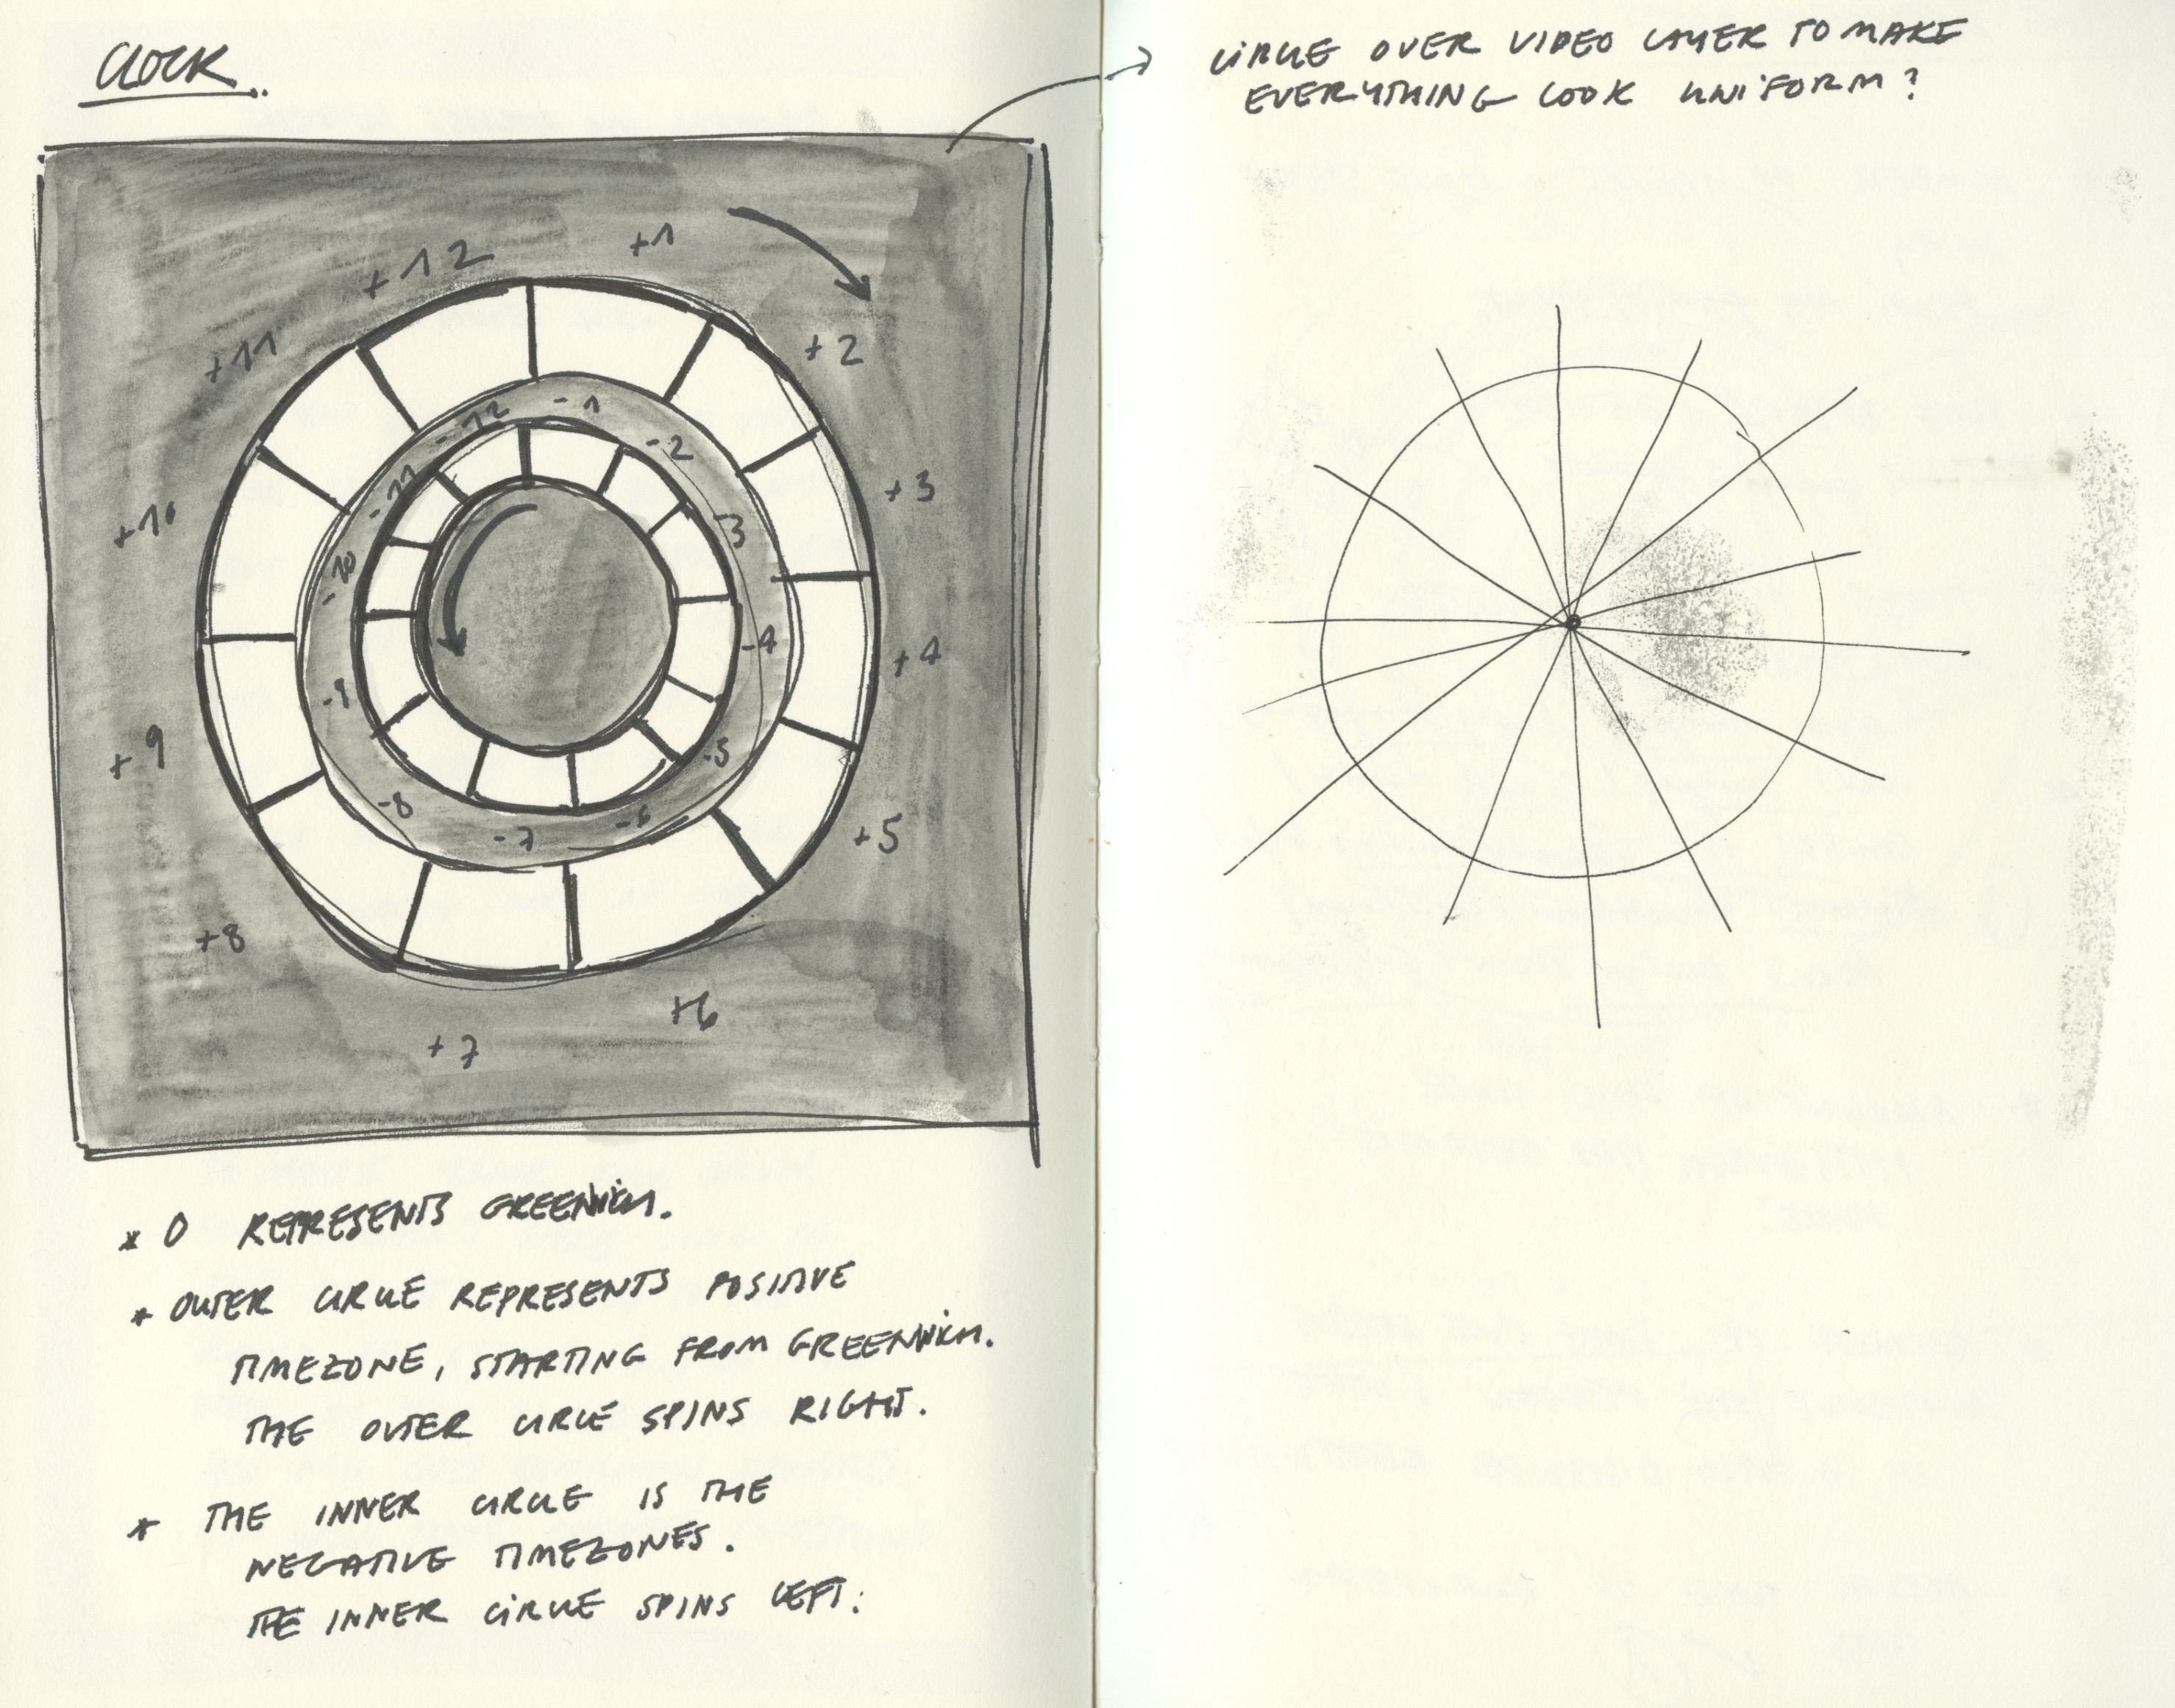 CLOCK..
+12
+1
+11
+2
+10
+3
+9
+4
+8
+5
+7
+6
-12
-1
-11
-2
-10
-3
-9
-4
-8
-5
-7
-6
* 0 REPRESENTS GREENWICH.
* OUTER CIRCLE REPRESENTS POSITIVE
TIMEZONE, STARTING FROM GREENWICH.
THE OUTER CIRCLE SPINS RIGHT.
* THE INNER CIRCLE IS THE
NEGATIVE TIMEZONES.
THE INNER CIRCLE SPINS LEFT.
CIRCLE OVER VIDEO LAYER TO MAKE
EVERYTHING LOOK UNIFORM?